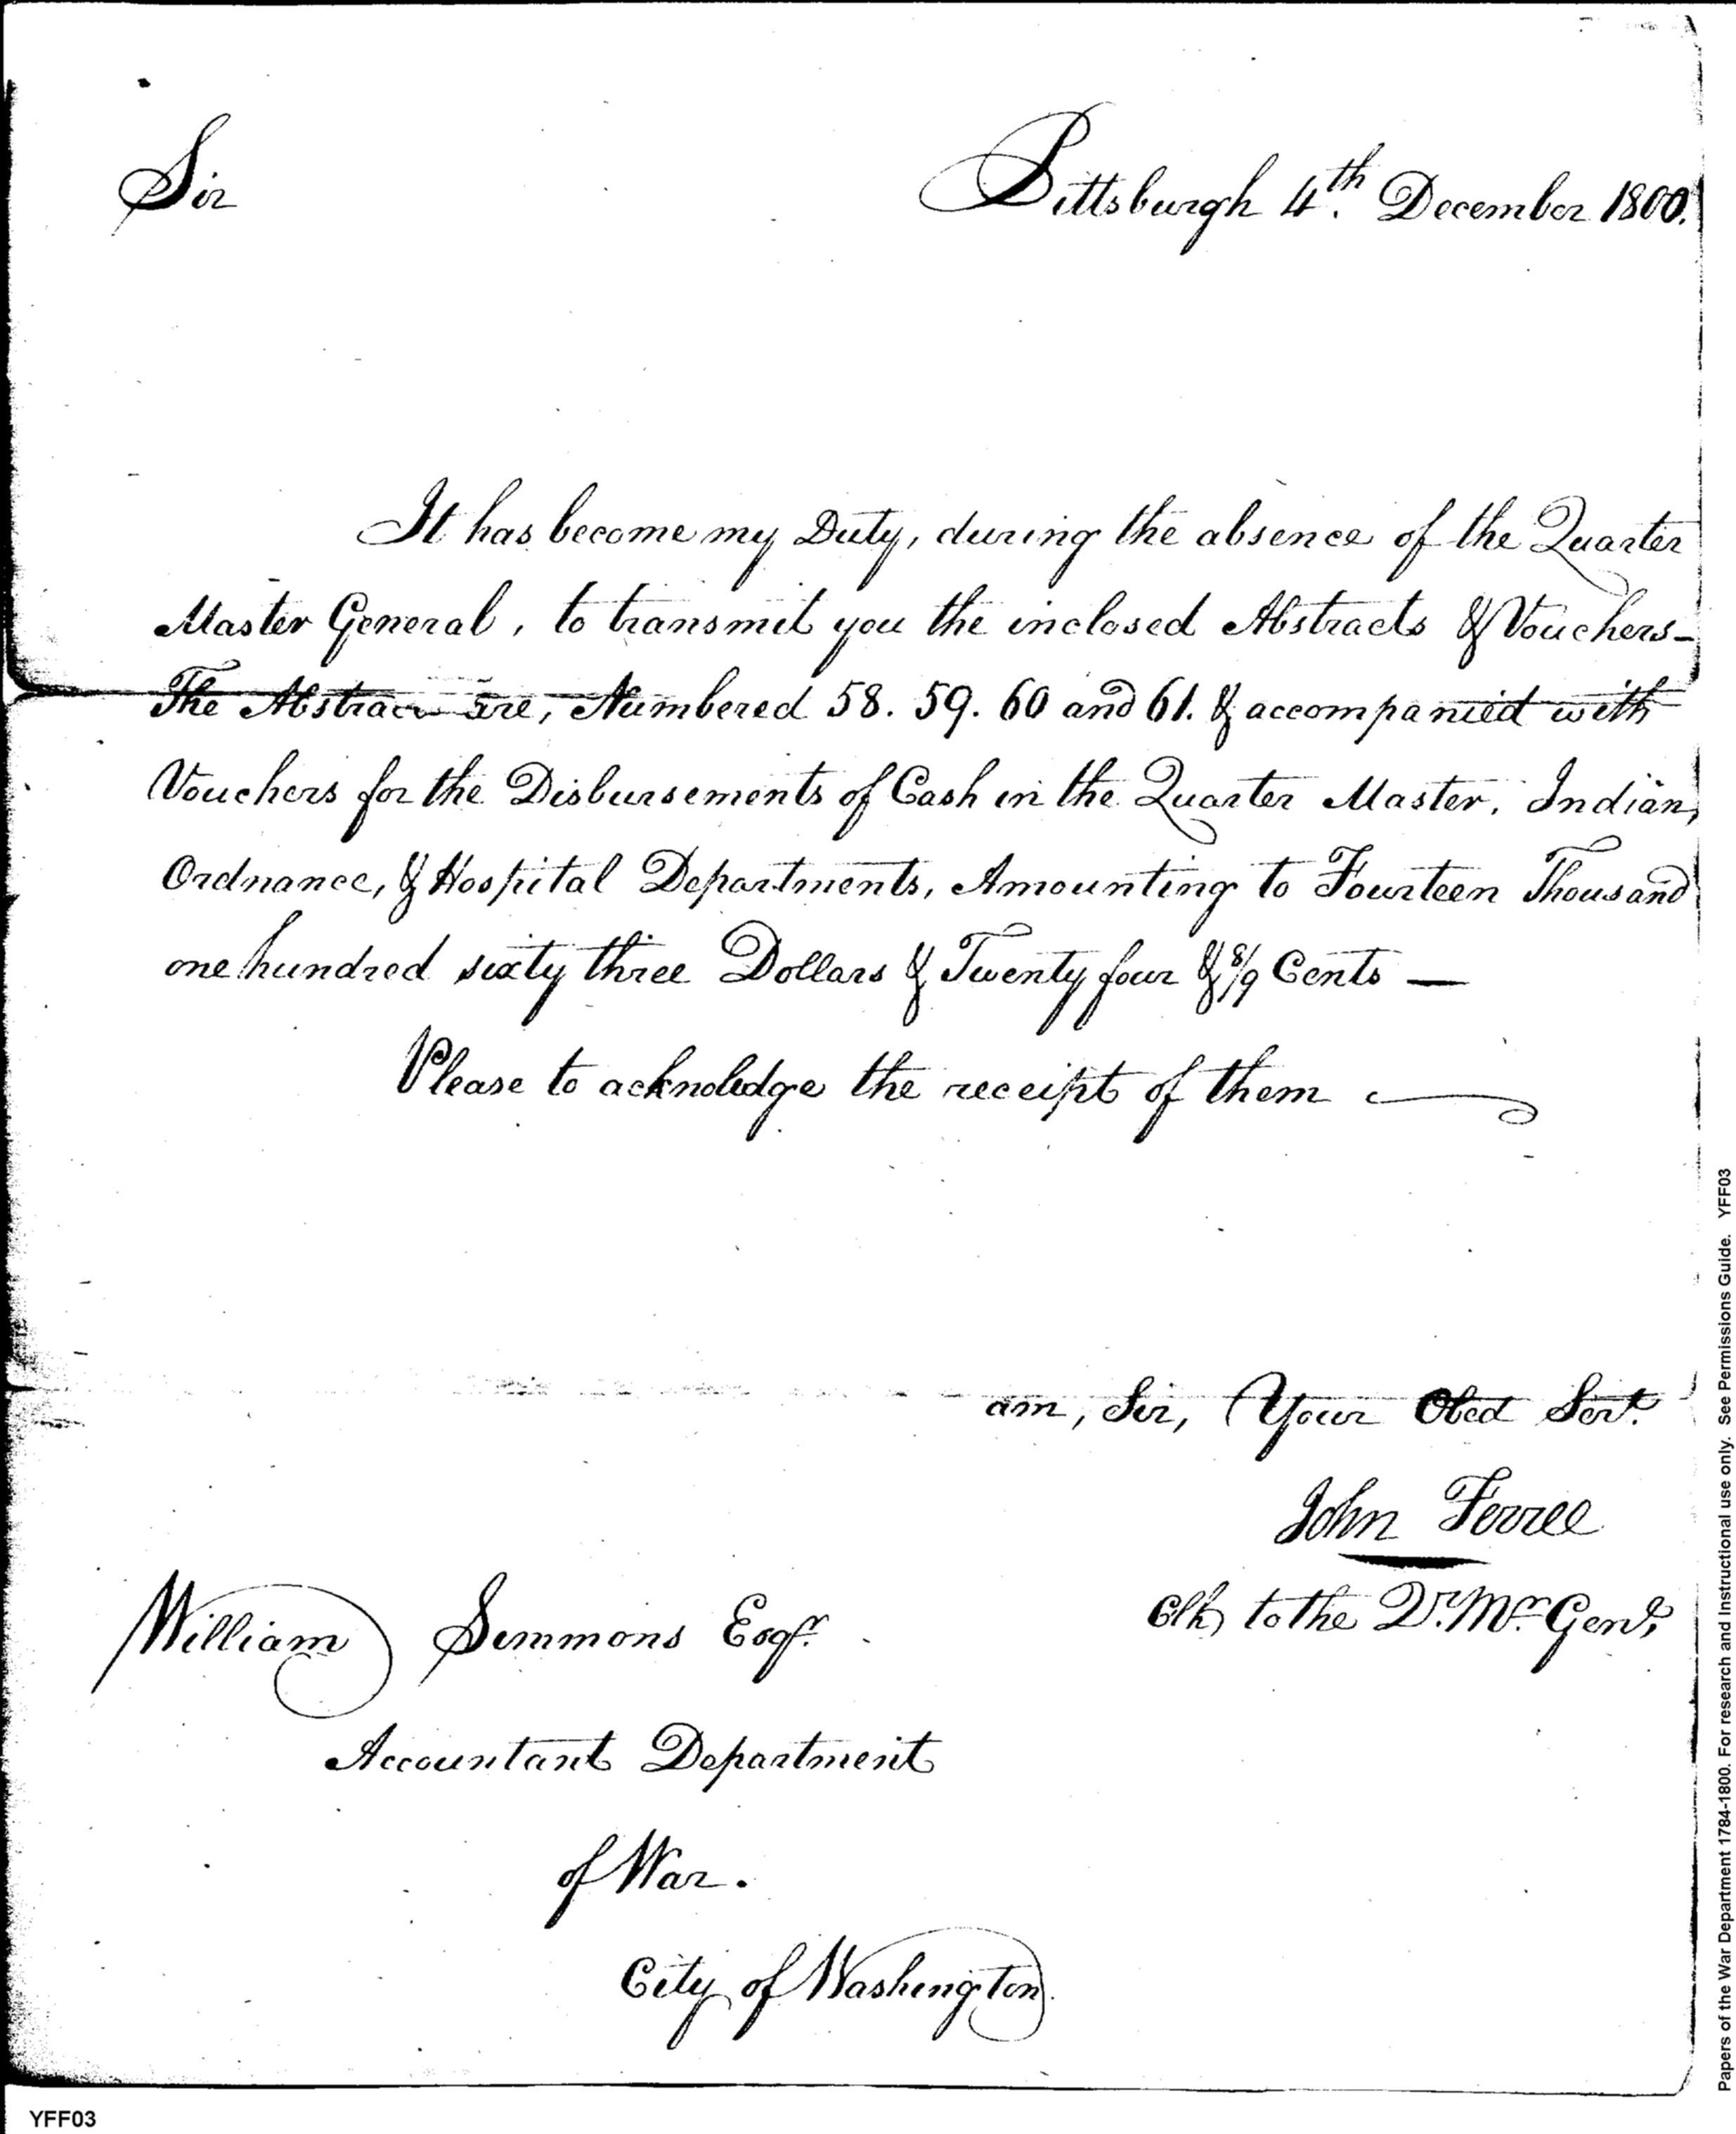 Sir
Pittsburgh 4th. December 1800.
It has become my Duty, during the absence of the Quarter
Master General, to transmit you the inclosed Abstracts & Vouchers-
The Abstracts are, Numbered 58. 59. 60 and 61. & accompanied with
Vouchers for the Disbursements of Cash in the Quarter Master, Indian,
Ordnance, & Hospital Departments, Amounting to Fourteen Thousand
one hundred sixty three Dollars & Twenty four & 8/9 Cents —
Please to acknoledge the receipt of them
am, Sir, Your Obed Servt.
John Ferree
Clk to the Qr. Mr. Genl,
William Simmons Esqr.
Accountant Department
of War.
City of Washington
Papers of the War Department 1784-1800. For research and Instructional use only. See Permissions Guide. YFF03
YFF03